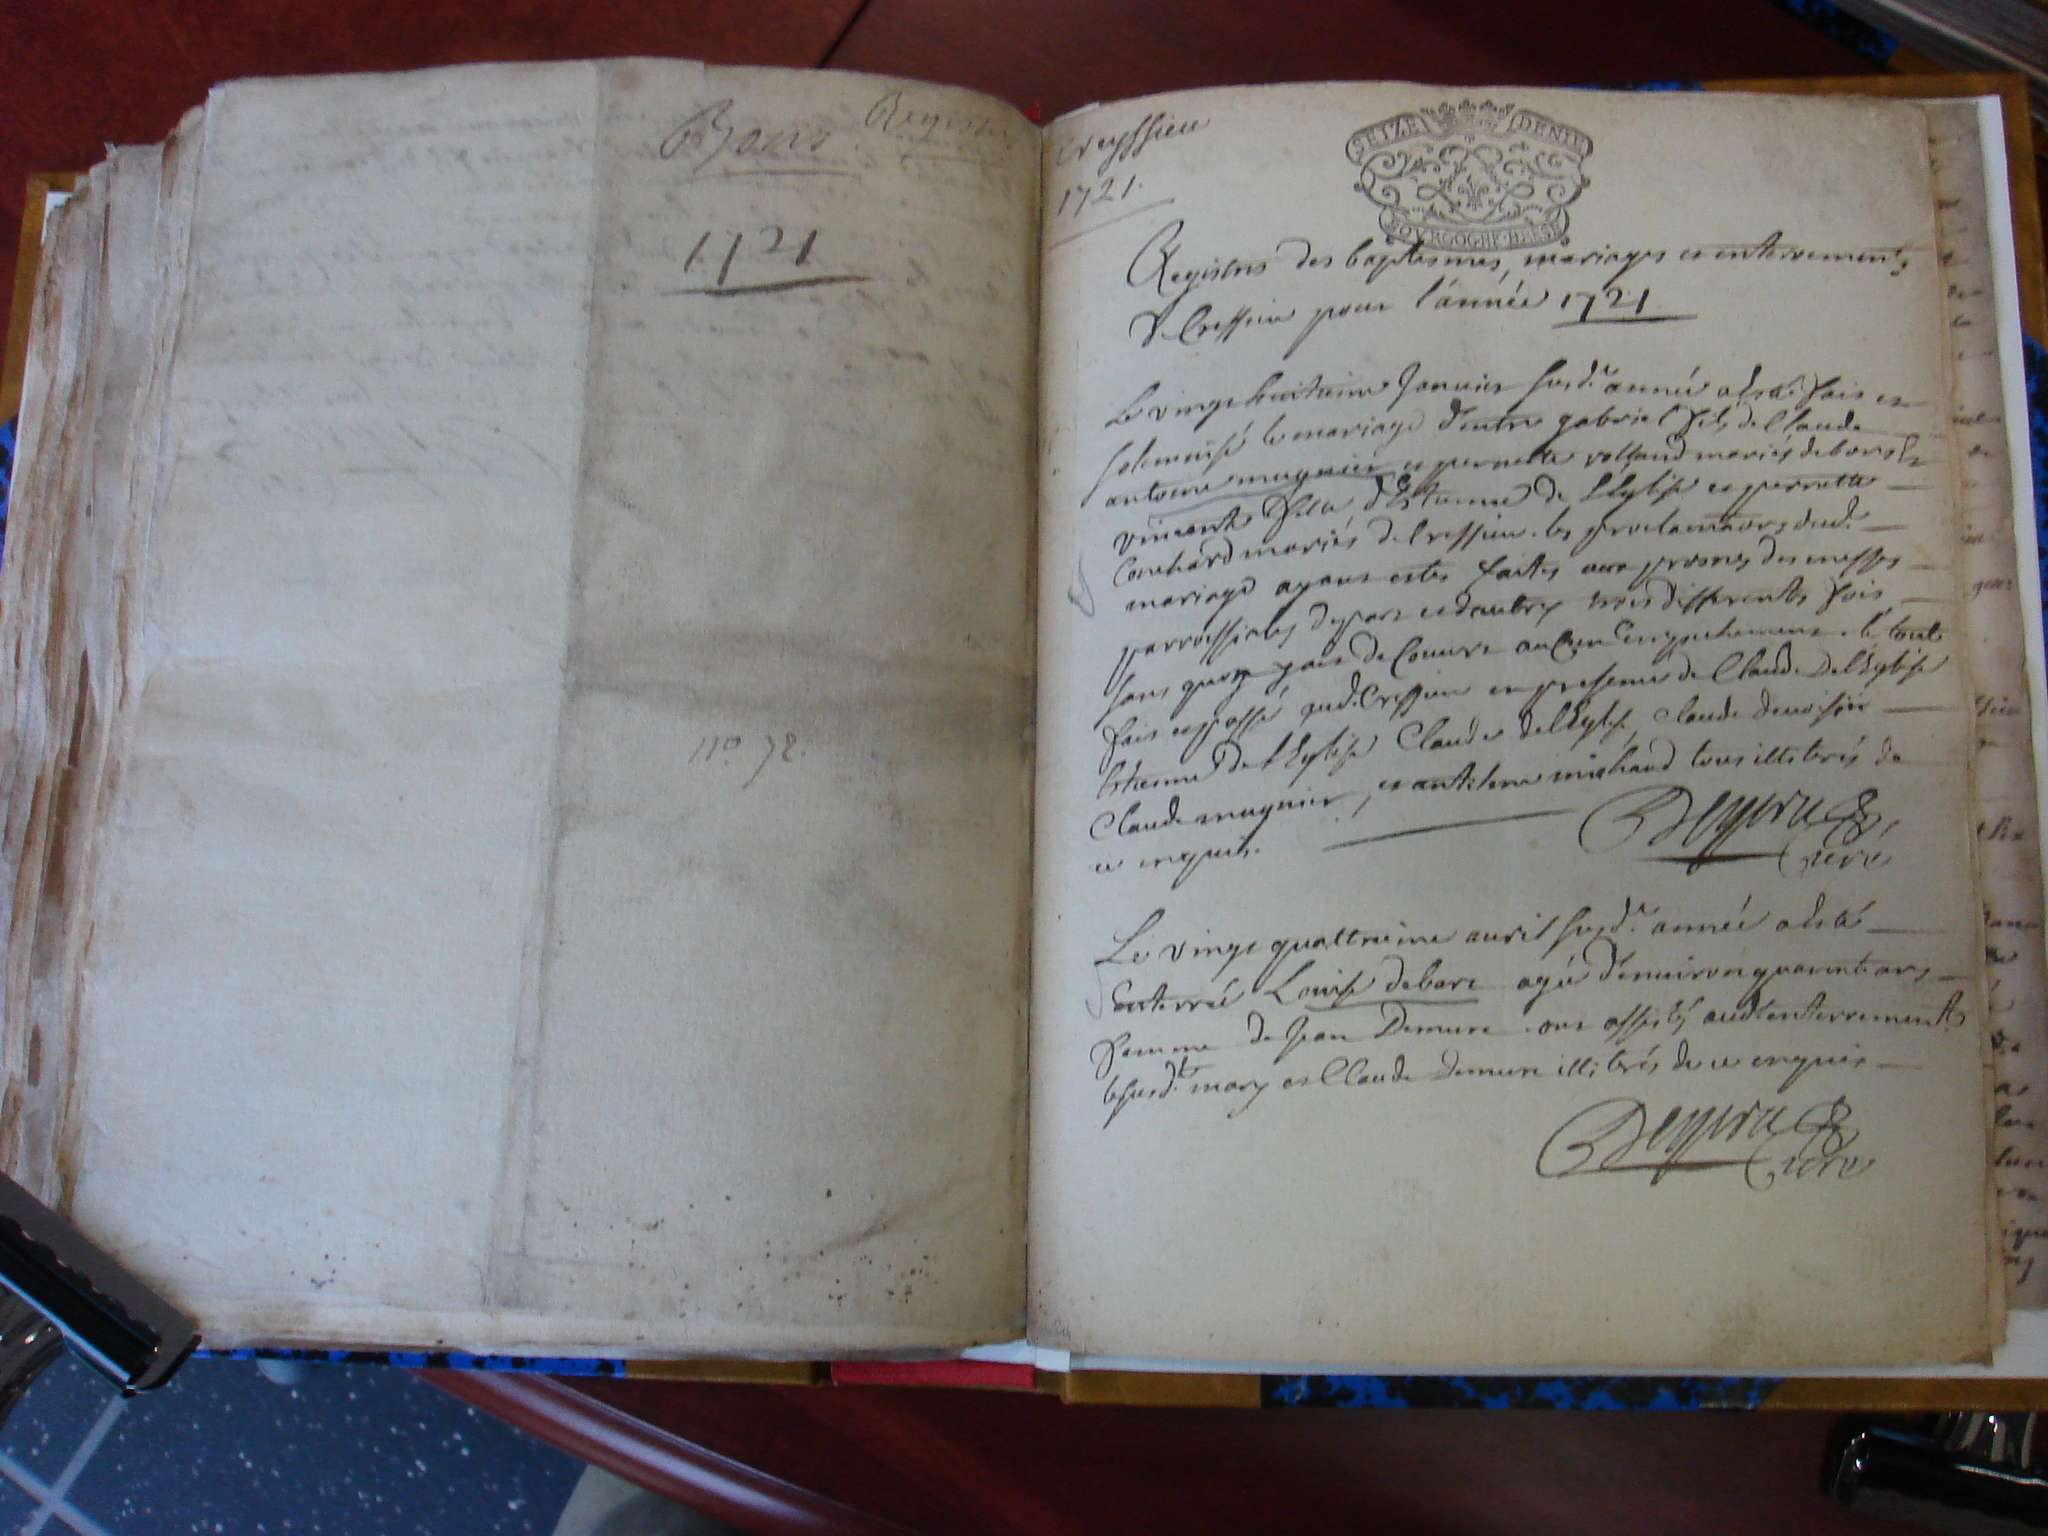 Bons Registre
1721
no. 78.
Creyssieu
1721.
SEIZE DENIE
BOURGOGNE BRESSE
Registres des baptesmes, mariages et enterrements
de Cressieu pour l'année 1721
Le vingt huitieme Janvier susd.e année a esté fait et
solemnisé le mariage d'entre gabriel fils de Claude
antoine mugnier et pernette volland mariés de bons Et
vincente fille d'Estienne de L'Eglise et perrette
Couchard mariés de Cressieu. les proclamaons dud.
mariage ayant estes faites aux prosnes des messes
parroissiales de part et d'autres trois differentes fois
sans quoy aucun Empechement. le tout
fait et passé aud. Cressieu en presence de Claude De l'Eglise
Estienne De l'Eglise Claude de l'Eglise, Claude
Claude mugnier, et antelme michaud tous illiterés de
ce enquis.
Curé
Le vingt quattrieme avril susd.e année a esté
Enterrée Louise debare agée d'environ quarante ans
femme de Jean Demure. ont assistés aud. enterrement
le susd.t mary et Claude Demure illiterés de ce enquis
Curé